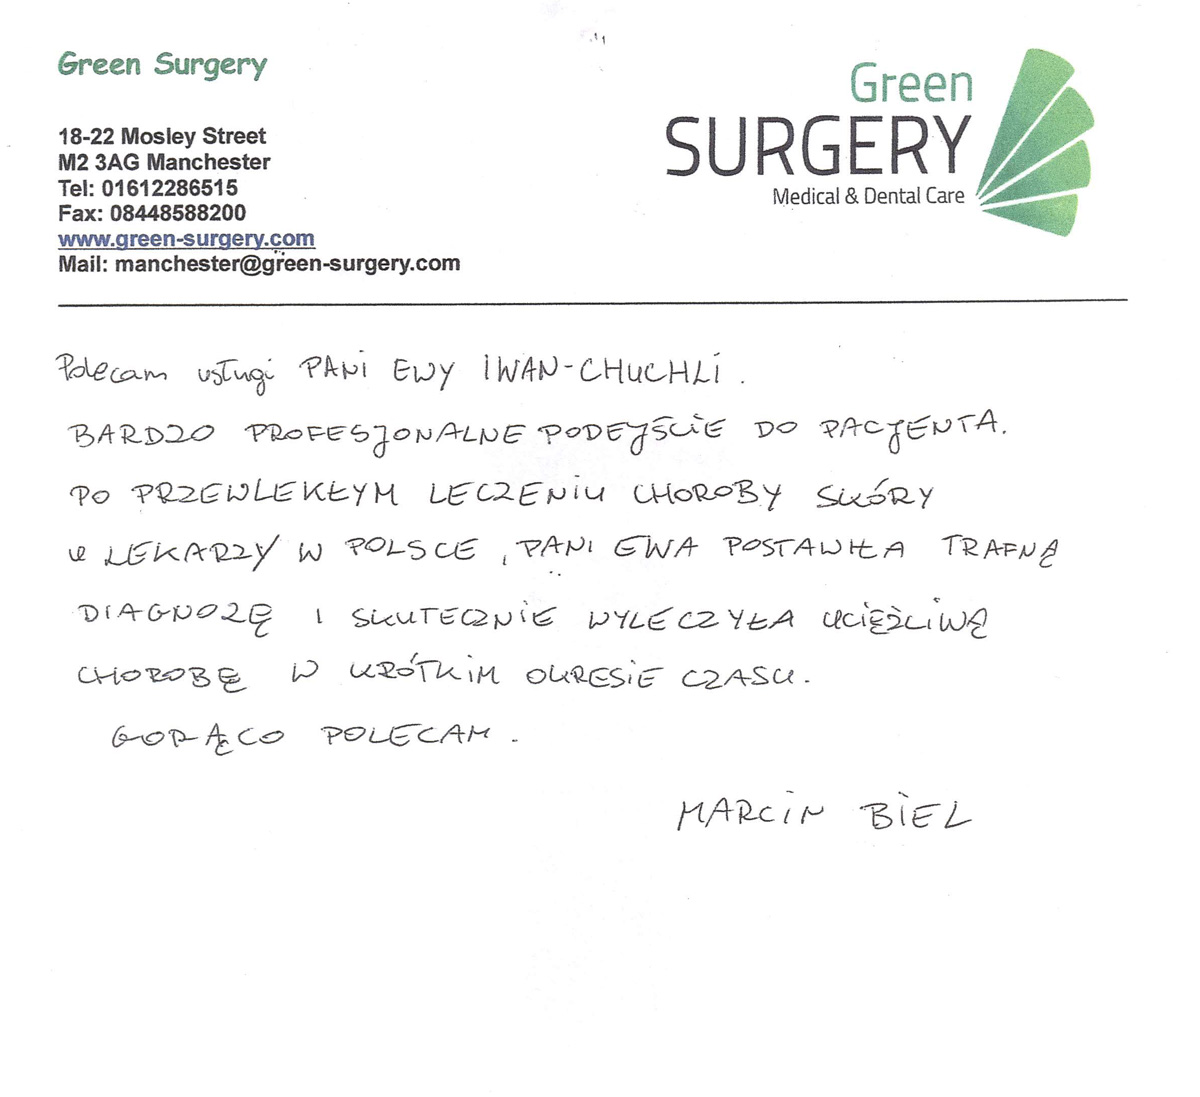 Green Surgery
18-22 Mosley Street
M2 3AG Manchester
Tel: 01612286515
Fax: 08448588200
www.green-surgery.com
Mail: manchester@green-surgery.com
Green
SURGERY
Medical & Dental Care
Polecam usługi PANI EWY IWAN-CHUCHLI.
BARDZO PROFESJONALNE PODEJŚCIE DO PACJENTA.
PO PRZEWLEKŁYM LECZENIU CHOROBY SKÓRY
U LEKARZY W POLSCE, PANI EWA POSTAWIŁA TRAFNĄ
DIAGNOZĘ I SKUTECZNIE WYLECZYŁA UCIĘŻLIWĄ
CHOROBĘ W KRÓTKIM OKRESIE CZASU.
GORĄCO POLECAM.
MARCIN BIEL